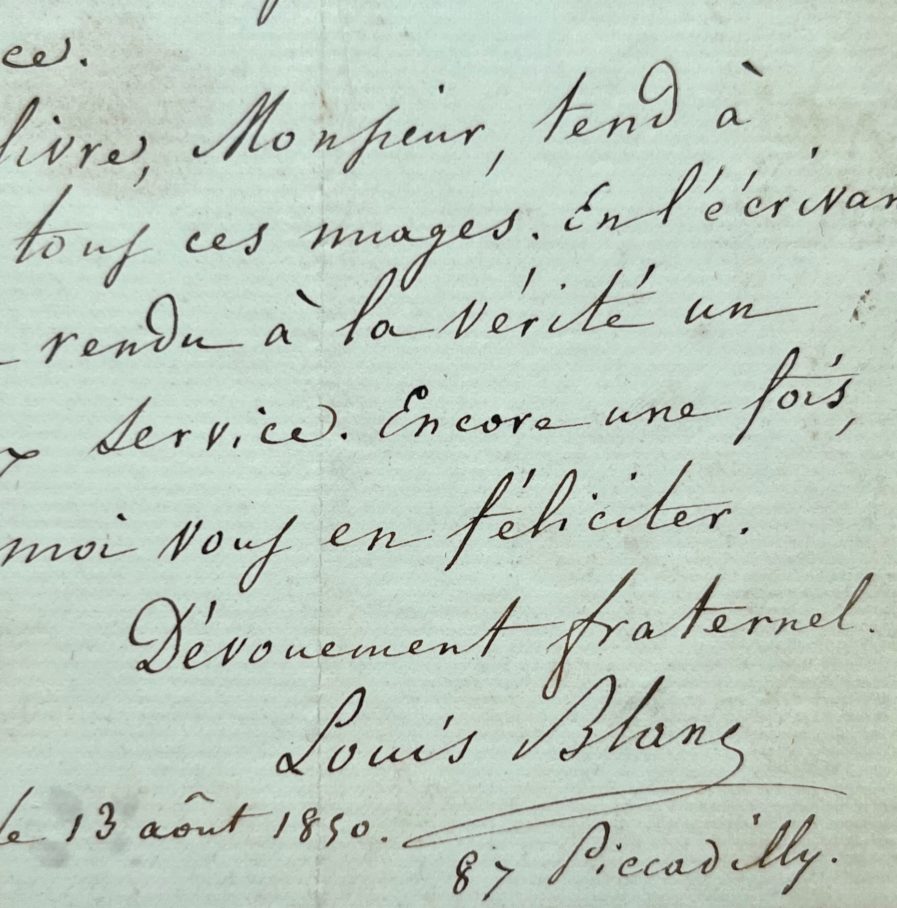 ce.
livre, Monsieur, tend à
tous ces nuages. En l'écrivan
rendu à la vérité un
x service. Encore une fois,
moi vous en féliciter.
Dévouement fraternel.
Louis Blanc
le 13 aôut 1850.
87 Piccadilly.